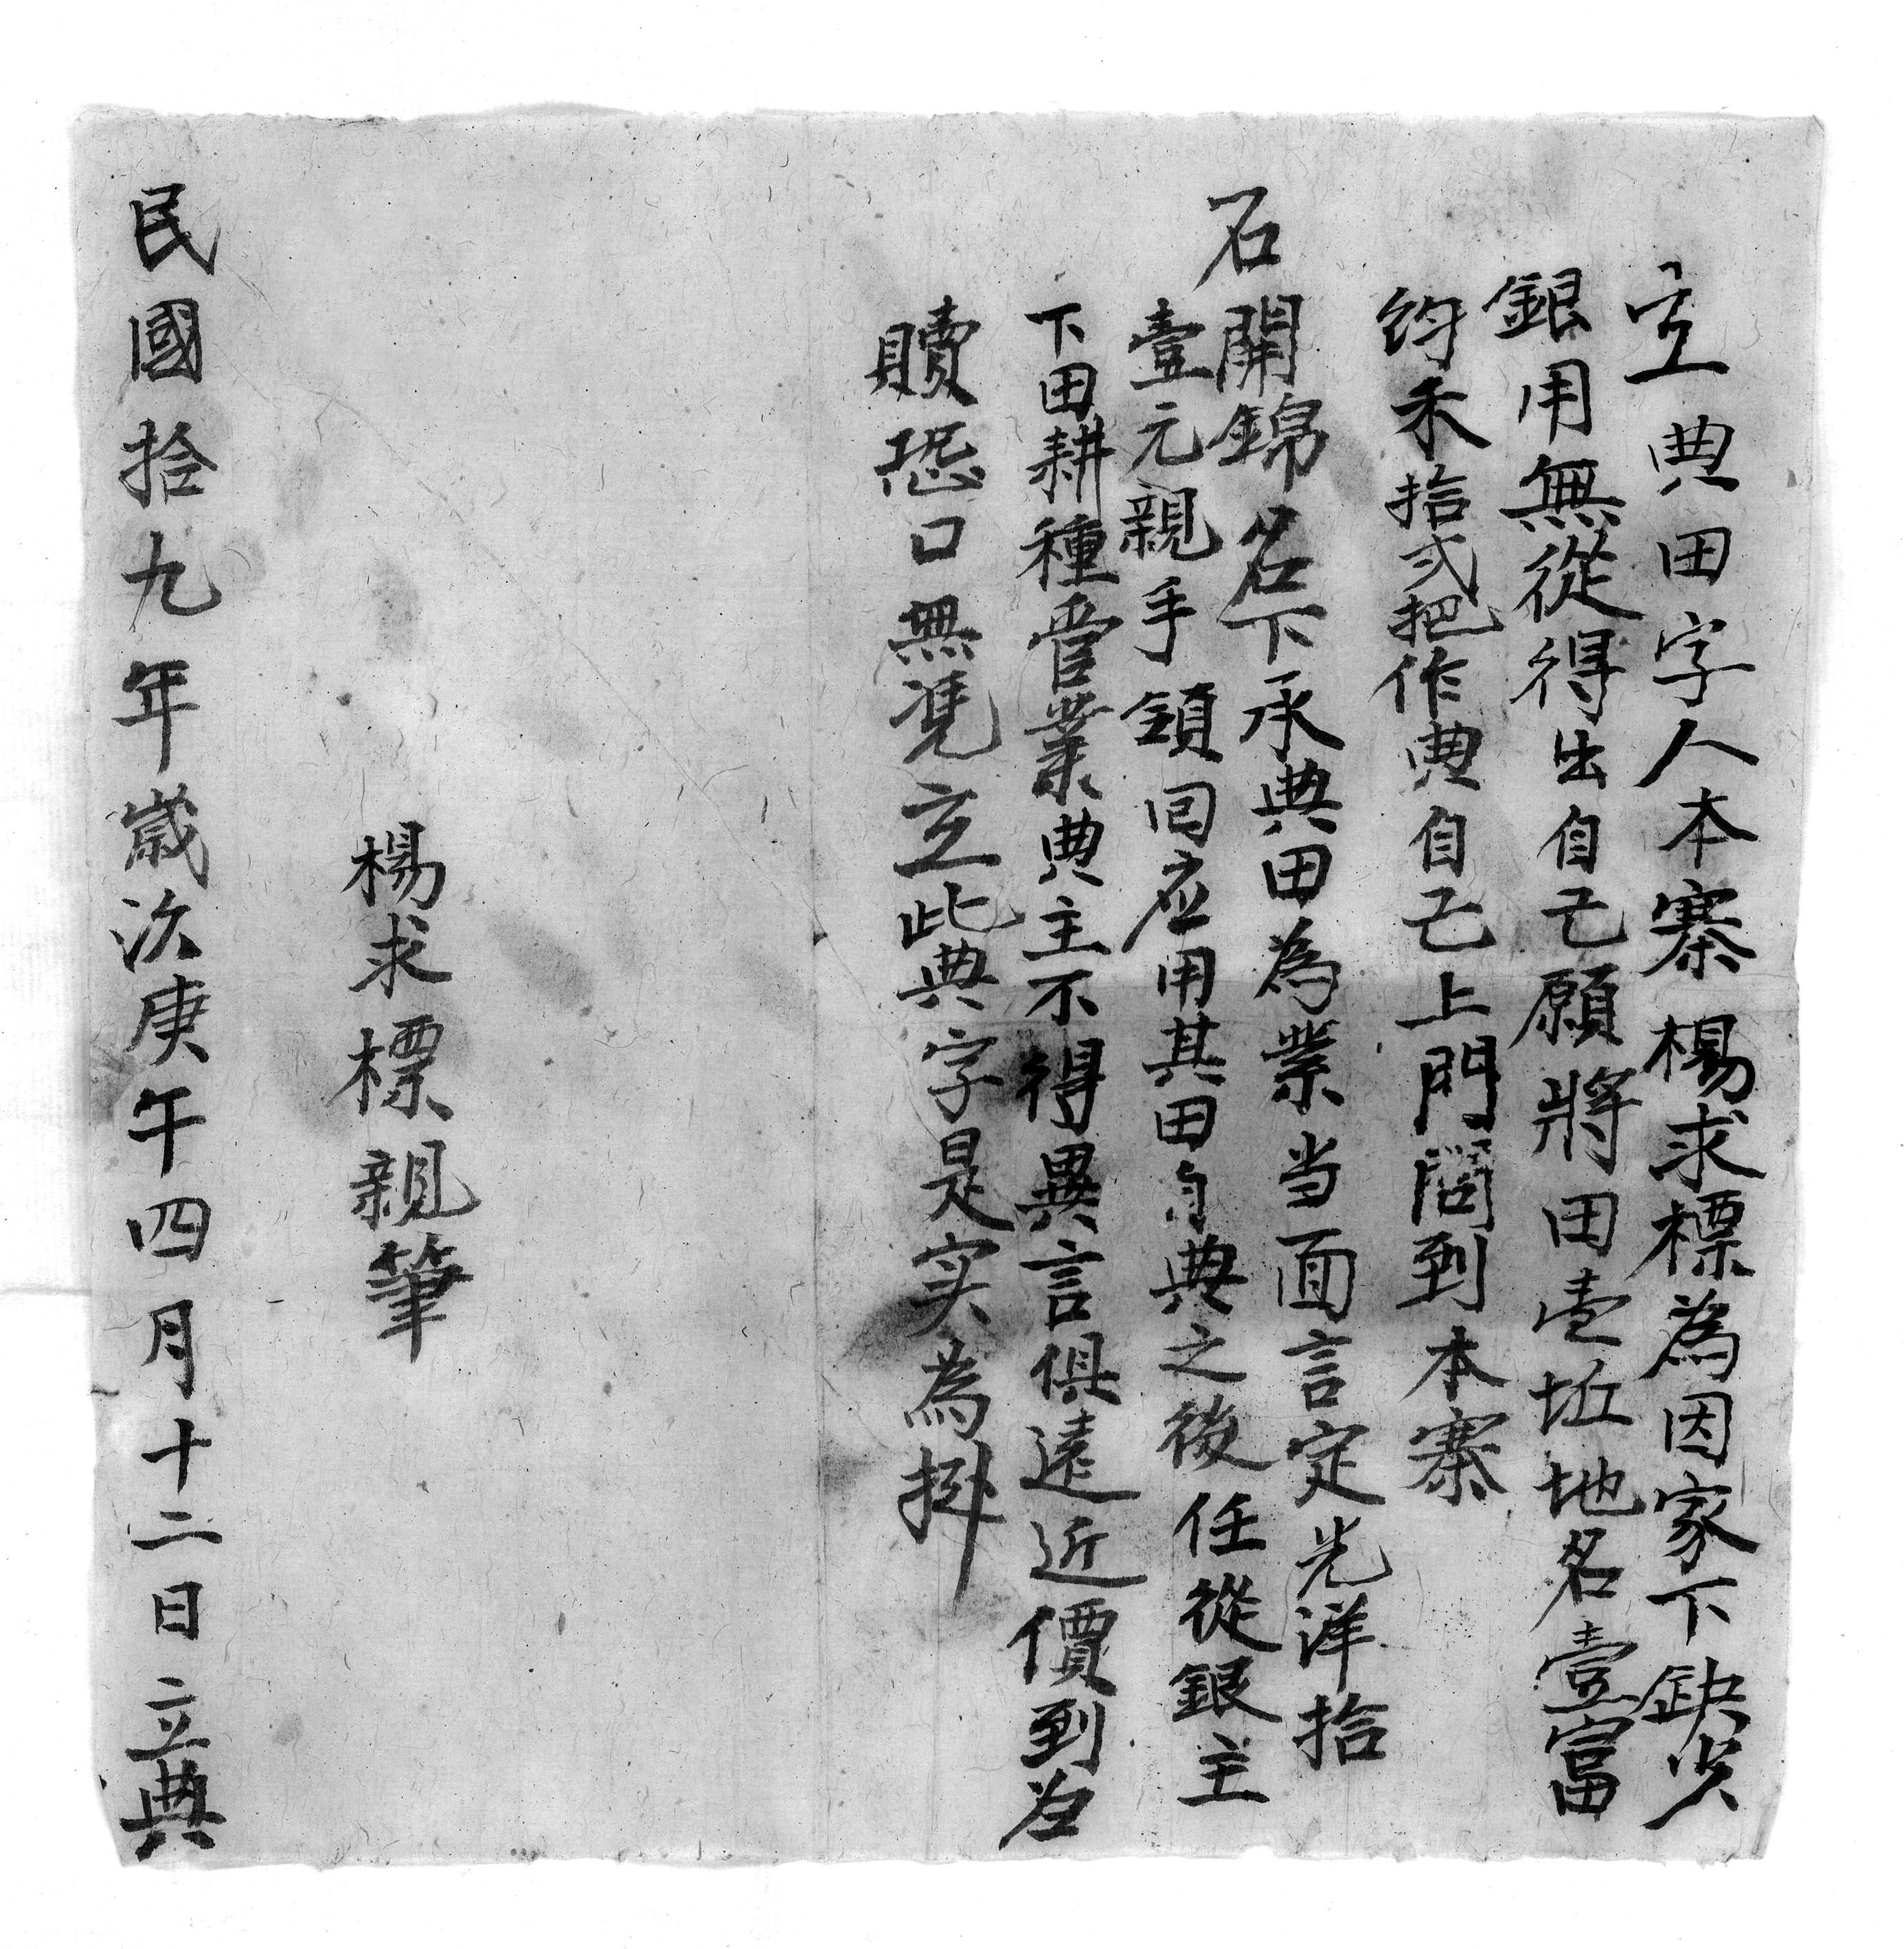 立典田字人本寨楊求標為因家下缺少
銀用無從得出自己願將田壹坵地名壹富
約禾拾弍把作典自己上門問到本寨
石開錦名下承典田為業当面言定光洋拾
壹元親手領回应用其田自典之後任從銀主
下田耕種管業典主不得異言俱遠近價到
贖恐口無凴立此典字是实為挶
楊求標親筆
民國拾九年歲次庚午四月十二日立典